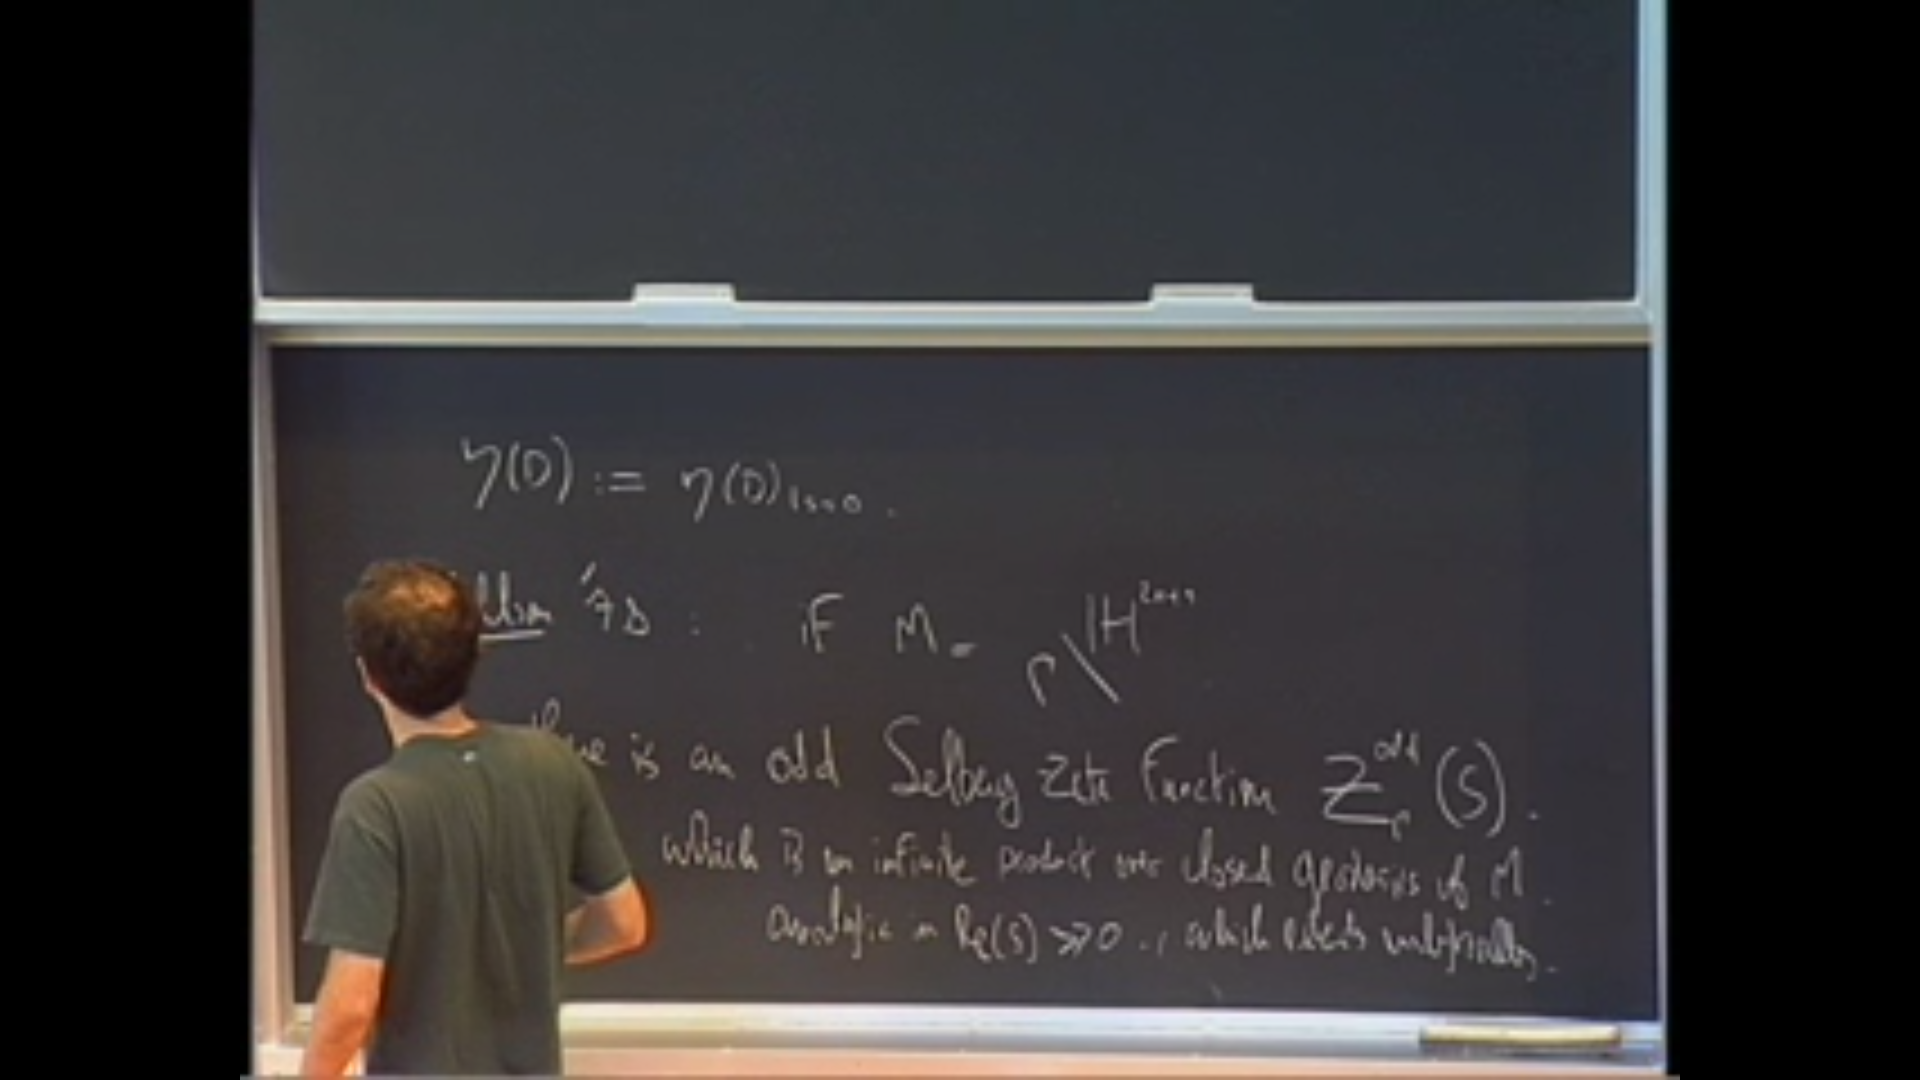 η(D) := η(D)|s=0.
'78 : if M = Γ\ℍ²ⁿ⁺¹
there is an odd Selberg zeta function Z_Γ^odd (s).
which is an infinite product over closed geodesics of M.
analytic in Re(s) ≫ 0, which extends